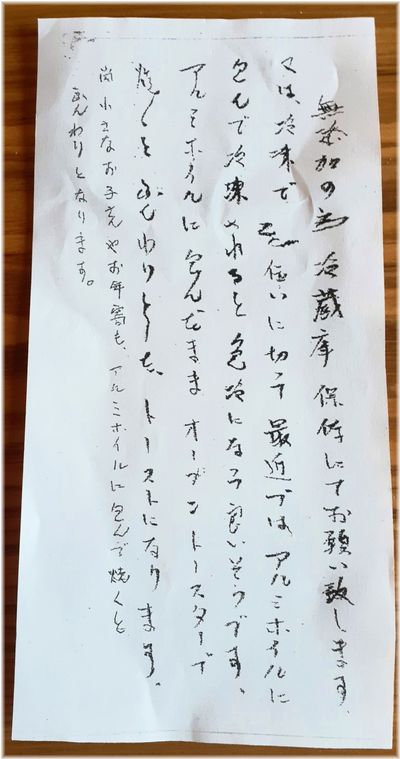 無添加の為冷蔵庫保存にてお願い致します
又は、冷凍で 位に切って最近ではアルミホイルに
包んで冷凍されると急冷になって良いそうです。
アルミホイルに包んだままオーブントースターで
焼くとふんわりとしたトーストになります。
尚小さなお子さんやお年寄も、アルミホイルに包んで焼くと
ふんわりとなります。